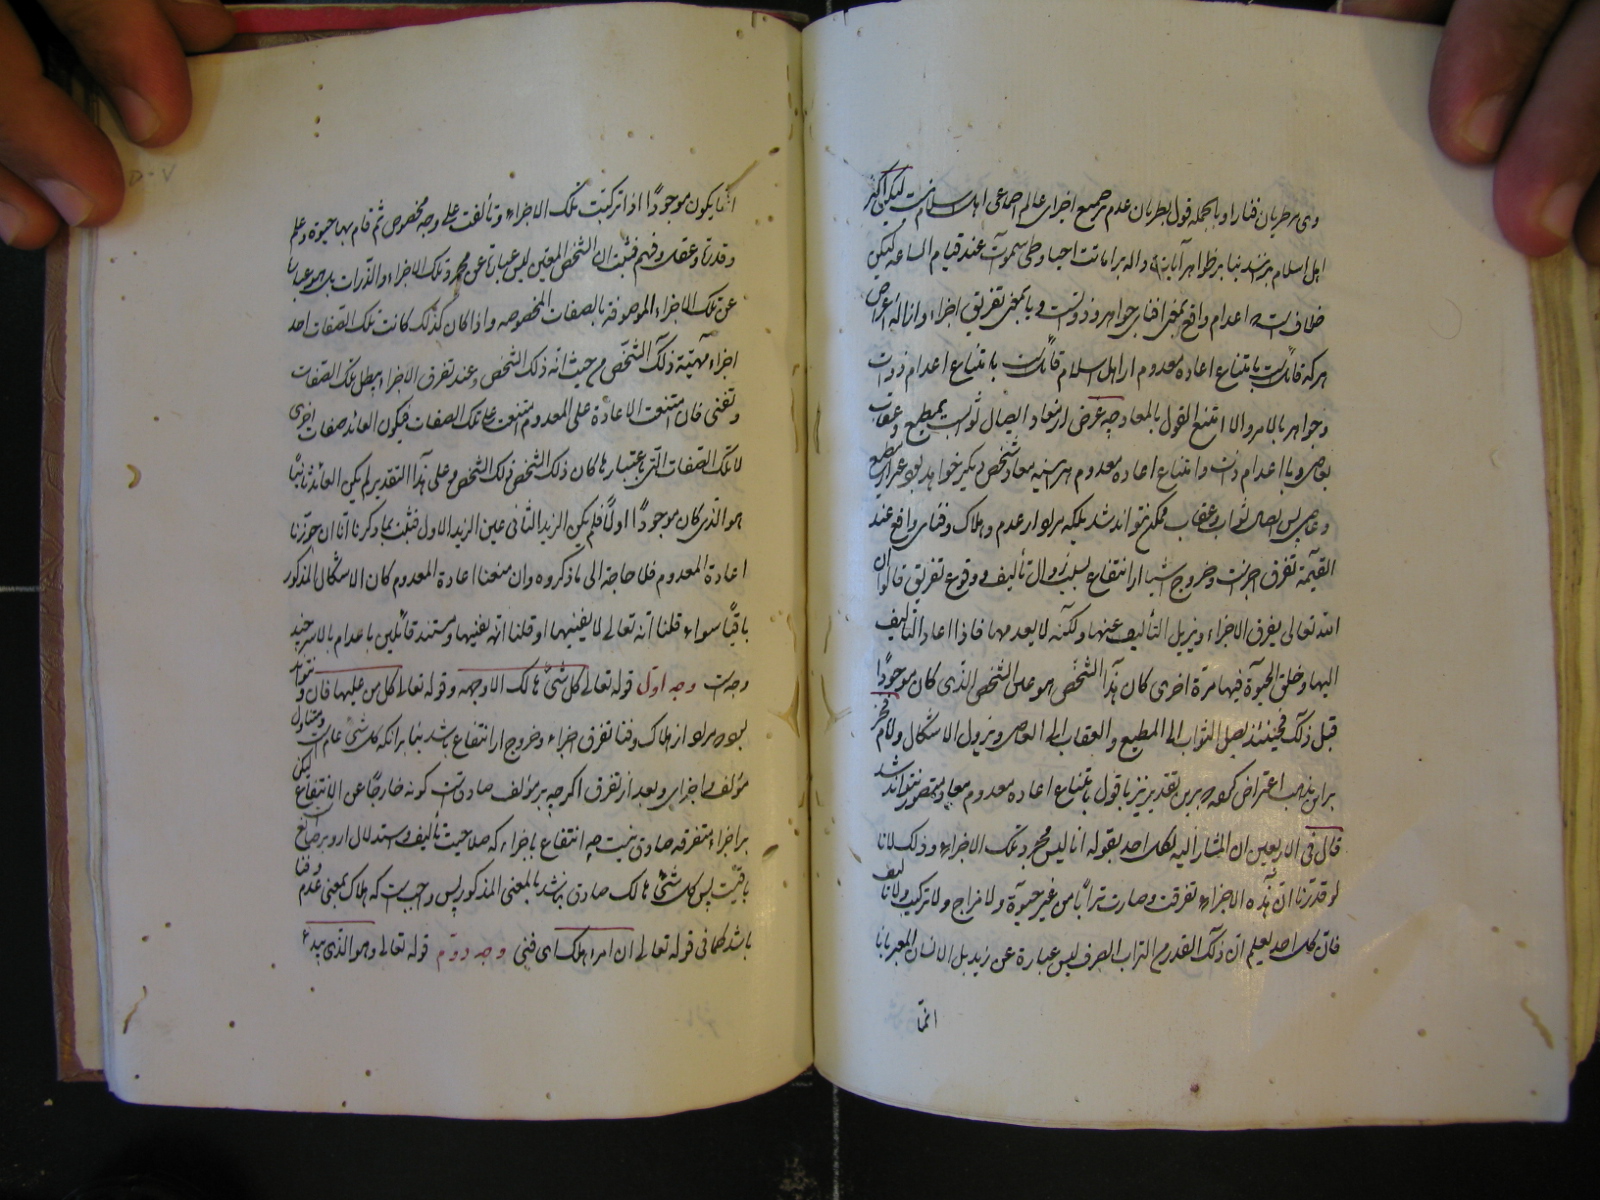 وی بر طریان فنا را و بالجمله قول بطریان عدم بر جمیع اجزای عالم اجماعی اهل اسلام نیست لیکن اکثر
اهل اسلام بر بنا بر ظواهر آیات داله بر اماتت احیا و طی سموات عند قیام الساعه لیکن
خلاف است که اعدام واقع بمعنی افنای جواهر و ذوات است و یا بمعنی تفریق اجزاء و ازاله اعراض
هر که قائلست بامتناع اعاده معدوم از اهل اسلام قائل نیست با متناع اعدام ذوات
و جواهر بالامر والا امتنع القول بالمعاد چه غرض از معاد ایصال ثواب بمطیع و عقاب
بعاصی و با اعدام ذات و امتناع اعاده معدوم هر آینه معاد شخص دیگر خواهد بود غیر از مطیع
و عاصی پس ایصال ثواب و عقاب ممکن نتواند شد بلکه مراد از عدم و هلاک و فنای واقع عند
القیمة تفرق اجزاست و خروج اشیا از انتفاع بسبب زوال تألیف و وقوع تفریق قالوا ان
الله تعالی یفرق الاجزاء و یزیل التألیف عنها و لکنه لا یعدمها فاذا اعاد التألیف
الیها و خلق الحیوة فیها مرة اخری کان هذا الشخص هو عین الشخص الذی کان موجوداً
قبل ذلک فحینئذ یصل الثواب الی المطیع و العقاب الی العاصی و یزول الاشکال و امام فخر
براین مذهب اعتراض کرده که برین تقدیر نیز با قول بامتناع اعاده معدوم معاد متصور نتواند شد
قال فی الاربعین ان المشار الیه لکل احد بقوله انا لیس مجرد تلک الاجزاء و ذلک لانا
لو قدرنا ان هذه الاجزاء تفرقت و صارت ترابا من غیر حیوة و لا مزاج و لا ترکیب و لا تألیف
فان کل احد یعلم ان ذلک القدر من التراب الصرف لیس عبارة عن زید بل الانسان المعین
انما
انما یکون موجوداً اذا ترکبت تلک الاجزاء و تألفت علی وجه مخصوص ثم قام بها حیوة و علم
و قدرة و عقل و فهم فثبت ان الشخص المعین لیس عبارة عن مجرد تلک الاجزاء و الذرات بل هو عبارة
عن تلک الاجزاء الموصوفة بالصفات المخصوصه و اذا کان کذلک کانت تلک الصفات احد
اجزاء مهیّة ذلک الشخص من حیث انه ذلک الشخص و عند تفرق الاجزاء یبطل تلک الصفات
و تفنی فان امتنعت الاعادة علی المعدوم امتنعت علی تلک الصفات فیکون العائد صفات اخری
لا تلک الصفات التی باعتبارها کان ذلک الشخص ذلک الشخص و علی هذا التقدیر لم یکن العائد ثانیا
هو الذی کان موجوداً اولاً فلم یکن الزید الثانی عین الزید الاول فثبت بما ذکرنا انا ان جوزنا
اعادة المعدوم فلا حاجة الی ما ذکروه و ان منعنا اعادة المعدوم کان الاشکال المذکور
باقیًا سواء قلنا انه تعالی لا یفنیها او قلنا انه یفنیها و مستند قائلین باعدام بالاسر چند
وجه است وجه اول قوله تعالی کل شیء هالک الا وجهه و قوله تعالی کل من علیها فان و نتواند
بود مراد از هلاک و فنا تفرق اجزاء و خروج از انتفاع باشد بنا بر آنکه کل شیء عام است و متناول
مؤلف و اجزای و بعد از تفرق اگرچه بر مؤلف صادقست کونه خارجًا عن الانتفاع لیکن
بر اجزاء متفرقه صادق نیست چه انتفاع باجزاء که صلاحیت تألیف و استدلال از او بر صانع
باقیست پس کل شیء هالک صادق نباشد بالمعنی المذکور پس واجب است که هلاک بمعنی عدم و فنا
باشد کما فی قوله تعالی ان امرؤ هلک ای فنی وجه دوم قوله تعالی و هو الذی یبدء